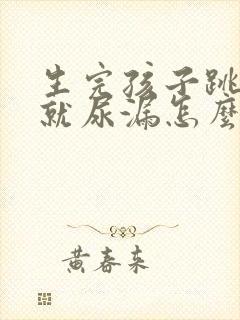 生完孩子跳
就尿漏怎麼
黄春来